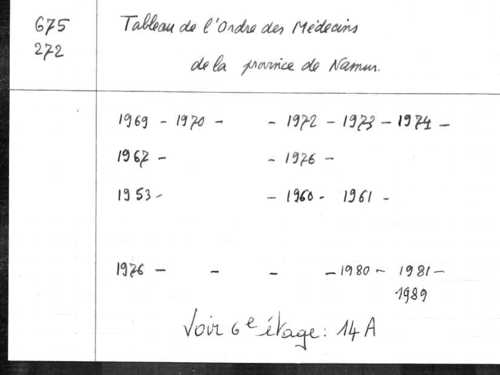 675
272
Tableau de l'Ordre des Médecins
de la province de Namur.
1969 - 1970 - - 1972 - 1973 - 1974 -
1967 - - 1976 -
1953 - - 1960 - 1961 -
1976 - - - - 1980 - 1981 -
1989
Voir 6e étage : 14 A